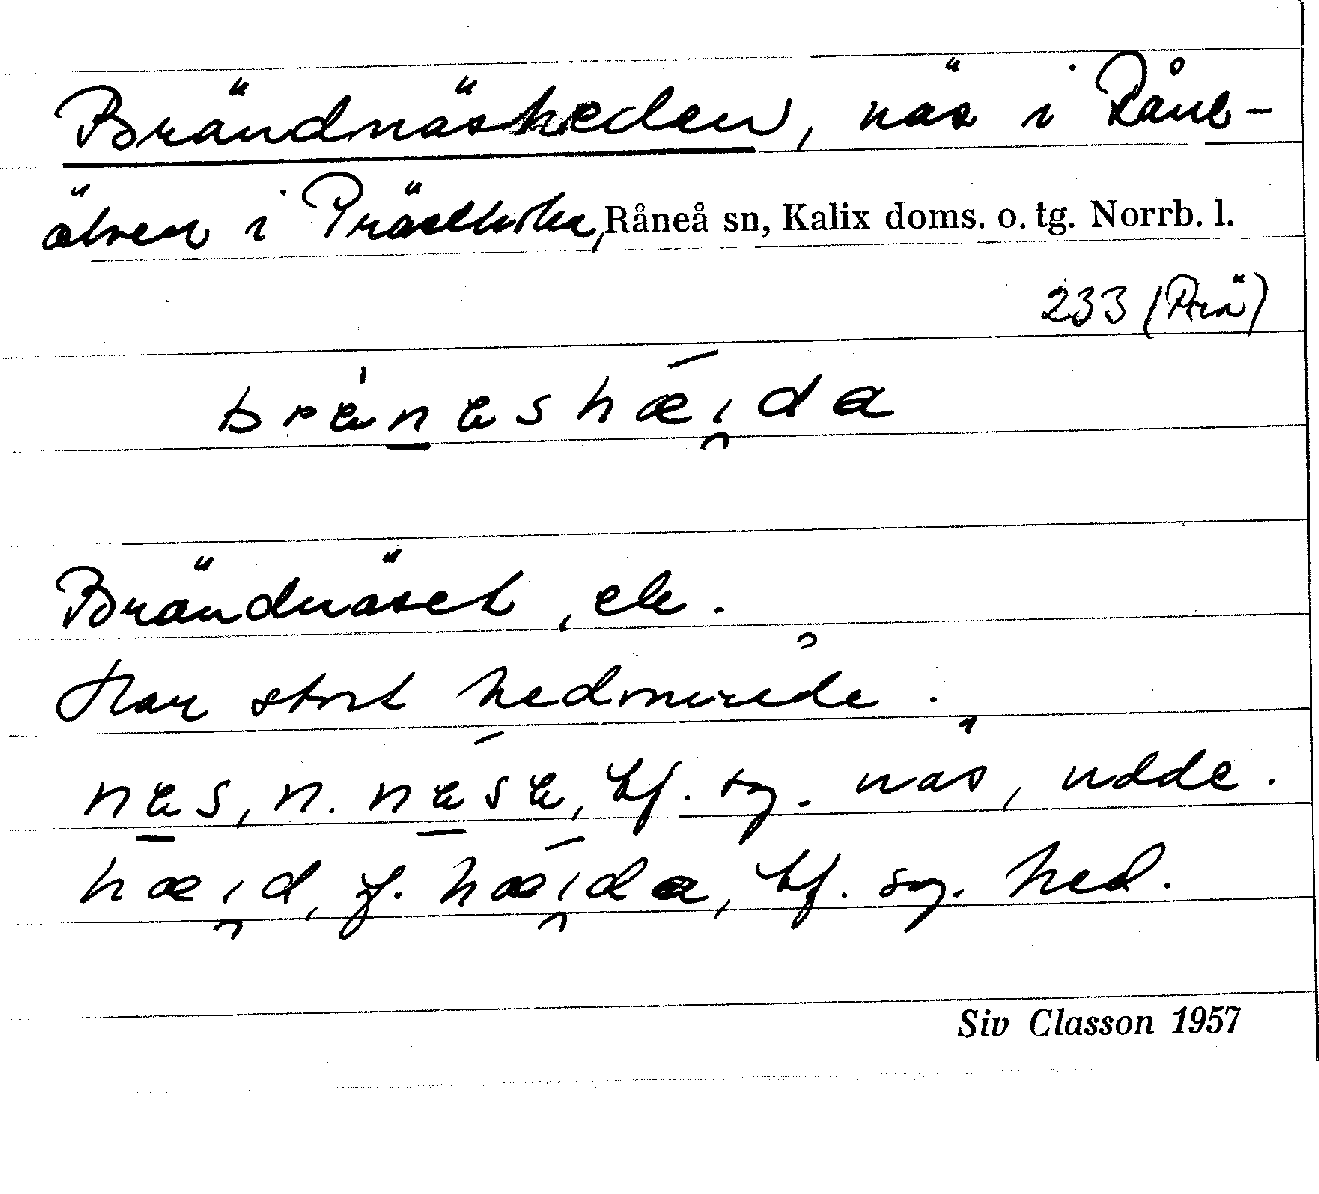 Brändnäsheden, näs i Råne-
älven i Prästholm, Råneå sn, Kalix doms. o. tg. Norrb. l.
233 (Prä)
brän̲äshæi̯da
Brändnäset, ek.
Har stort hedområde.
næ̲s, n. nǽ̲sæ, bf. sg. näs, udde.
hæi̯d, f. hǽi̯da, bf. sg. hed.
Siv Classon 1957